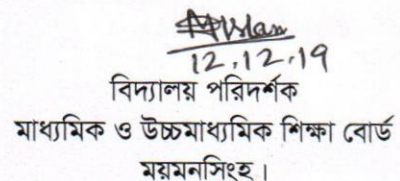 12.12.19
বিদ্যালয় পরিদর্শক
মাধ্যমিক ও উচ্চমাধ্যমিক শিক্ষা বোর্ড
ময়মনসিংহ।